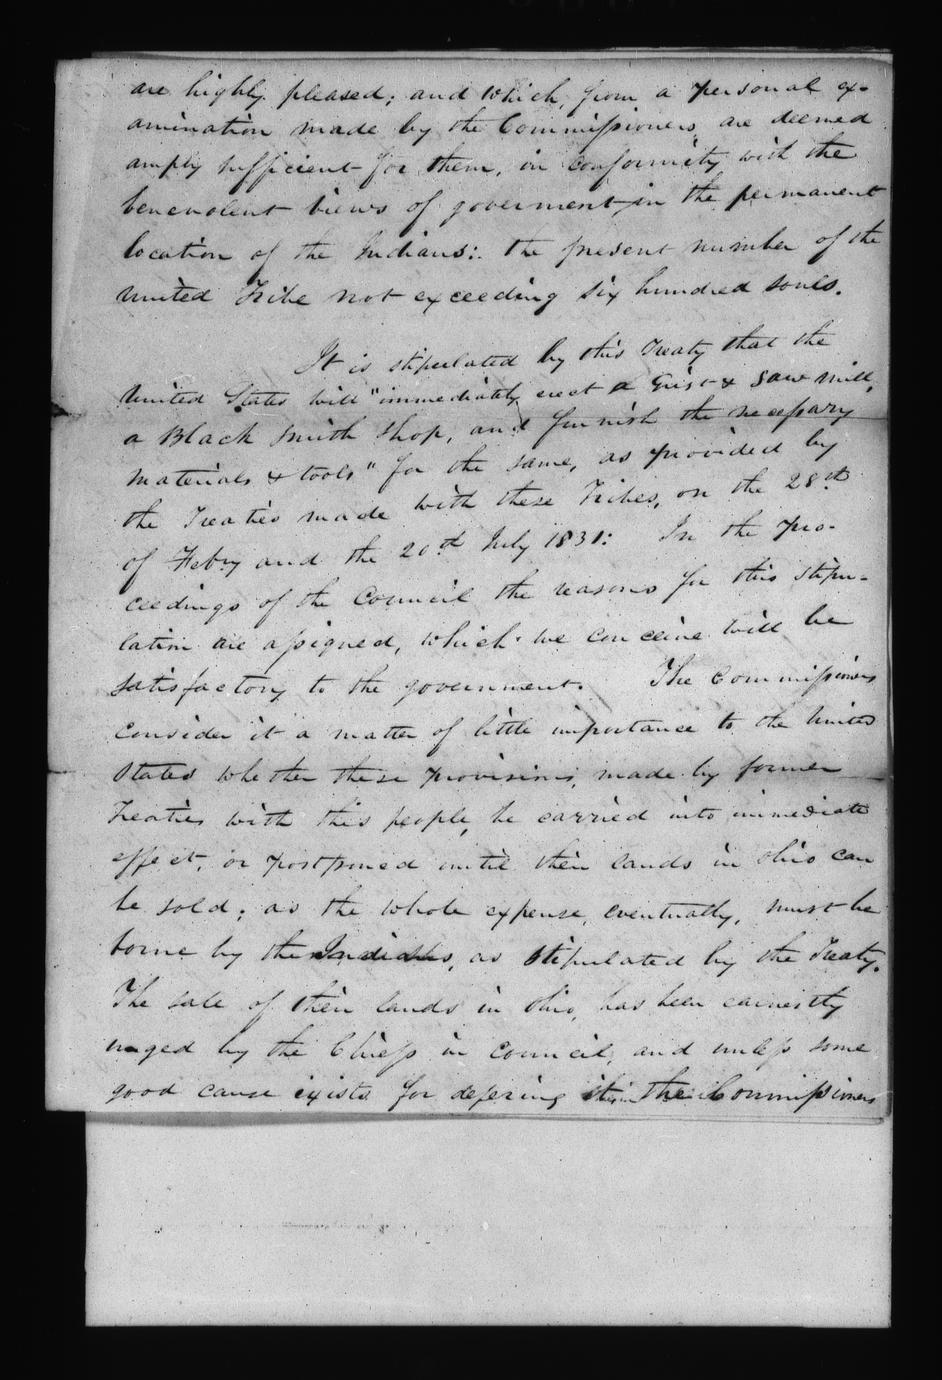 are highly pleased; and which, from a personal ex-
amination made by the Commissioners, are deemed
amply sufficient for them, in conformity with the
benevolent views of goverment in the permanent
location of the Indians: the present number of the
united Tribe not exceeding six hundred souls.
It is stipulated by this Treaty that the
United States will "immediately erect a Grist & Saw mill,
a Black Smith Shop, and furnish the necessary
materials & tools" for the same, as provided by
the Treaties made with these Tribes, on the 28th
of Feby and the 20th July 1831: In the pro-
ceedings of the Council the reasons for this stipu-
lation are assigned, which we conceive will be
satisfactory to the government. The Commissioners
consider it a matter of little importance to the United
States whether these provisions, made by former
Treaties with this people, be carried into immediate
effect, or postponed until their lands in Ohio can
be sold; as the whole expense, eventually, must be
borne by the Indians, as stipulated by the Treaty.
The sale of their lands in Ohio, has been earnestly
urged by the Chiefs in council, and unless some
good cause exists for defering it the Commissioners